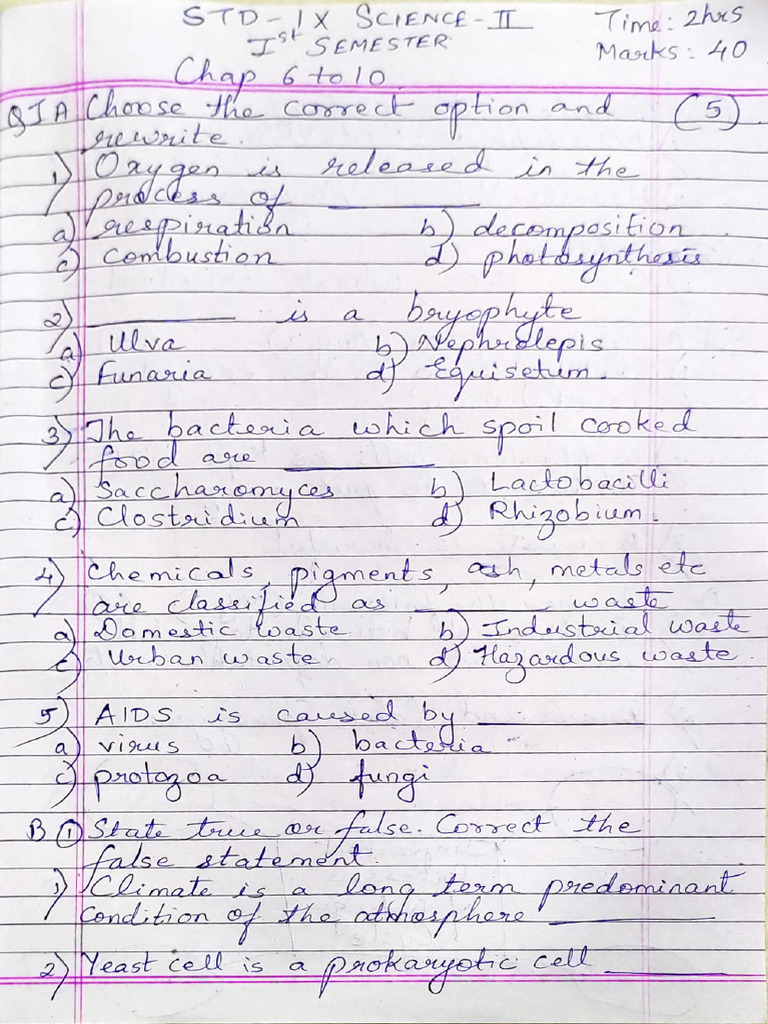 STD-IX SCIENCE-II Time: 2hrs
Ist SEMESTER Marks: 40
Chap 6 to 10
QIA Choose the correct option and (5)
rewrite.
1) Oxygen is released in the
process of ______
a) respiration b) decomposition
c) combustion d) photosynthesis
2) ______ is a bryophyte
a) Ulva b) Nephrolepis
c) Funaria d) Equisetum.
3) The bacteria which spoil cooked
food are ______
a) Saccharomyces b) Lactobacilli
c) Clostridium d) Rhizobium.
4) Chemicals, pigments, ash, metals etc
are classified as ______ waste
a) Domestic waste b) Industrial waste
c) Urban waste d) Hazardous waste.
5) AIDS is caused by ______
a) virus b) bacteria
c) protozoa d) fungi
B ① State true or false. Correct the
false statement.
1) Climate is a long term predominant
condition of the atmosphere ______
2) Yeast cell is a prokaryotic cell ______